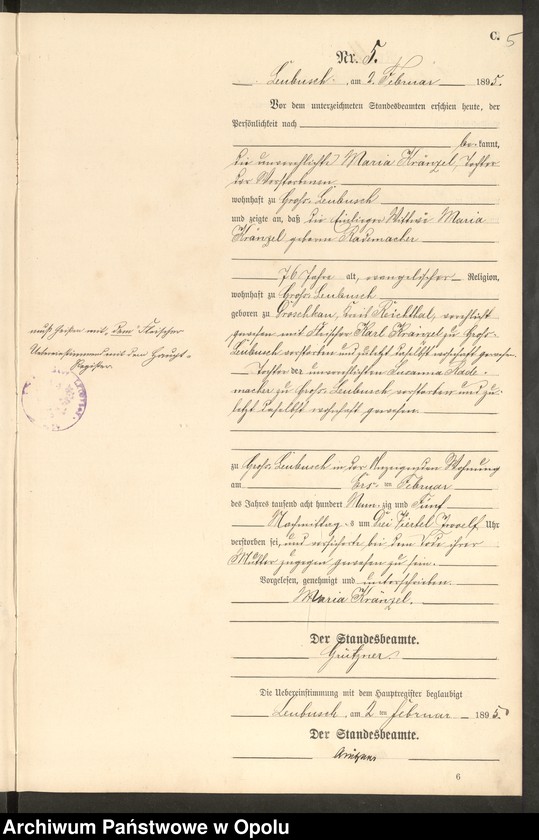 C.
5
Nr. 5.
Leubusch, am 2. Februar 1895.
Vor dem unterzeichneten Standesbeamten erschien heute, der
Persönlichkeit nach
be kannt,
die unverehlichte Maria Kränzel, Tochter
der Verstorbenen
wohnhaft zu Groß-Leubusch
und zeigte an, daß die Einlieger Wittwe Maria
Kränzel geborene Rademacher
76 Jahre alt, evangelischer Religion,
wohnhaft zu Groß-Leubusch
geboren zu Droschkau, Kreis Reichthal, verehlicht
gewesen mit Karl Kränzel zu Groß-
Leubusch verstorben und zuletzt daselbst wohnhaft gewesen.
Tochter der unverehlichten Susanna Rade-
macher zu Groß-Leubusch verstorben und zu-
letzt daselbst wohnhaft gewesen.
muß heißen mit: dem
Uebereinstimmend mit dem Haupt-
Register.
zu Groß-Leubusch in der Wohnung
am Ers ten Februar
des Jahres tausend acht hundert Neun zig und Fünf
Nachmittag s um Drei Viertel Zwoelf Uhr
verstorben sei, und versicherte bei dem Tode ihrer
Mutter zugegen gewesen zu sein.
Vorgelesen, genehmigt und unterschrieben.
Maria Kränzel.
Der Standesbeamte.
Grützner
Die Uebereinstimmung mit dem Hauptregister beglaubigt
Leubusch, am 2 ten Februar 1895.
Der Standesbeamte.
Grützner
6
Archiwum Państwowe w Opolu